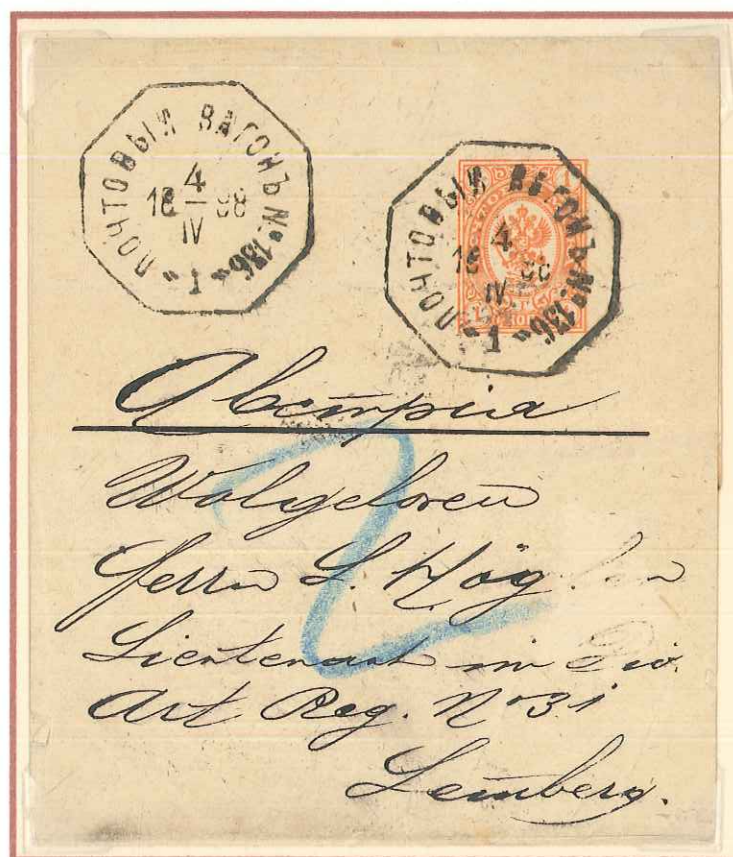 ПОЧТОВЫЙ ВАГОНЪ № 136 „1“
4
18 98
IV
ПОЧТОВЫЙ ВАГОНЪ № 136 „1“
4
18 98
IV
Австрiя
2
Wolgeloren
Herrn L. Hög
Lieutenant im Div.
Art Reg. No 31
Lemberg.